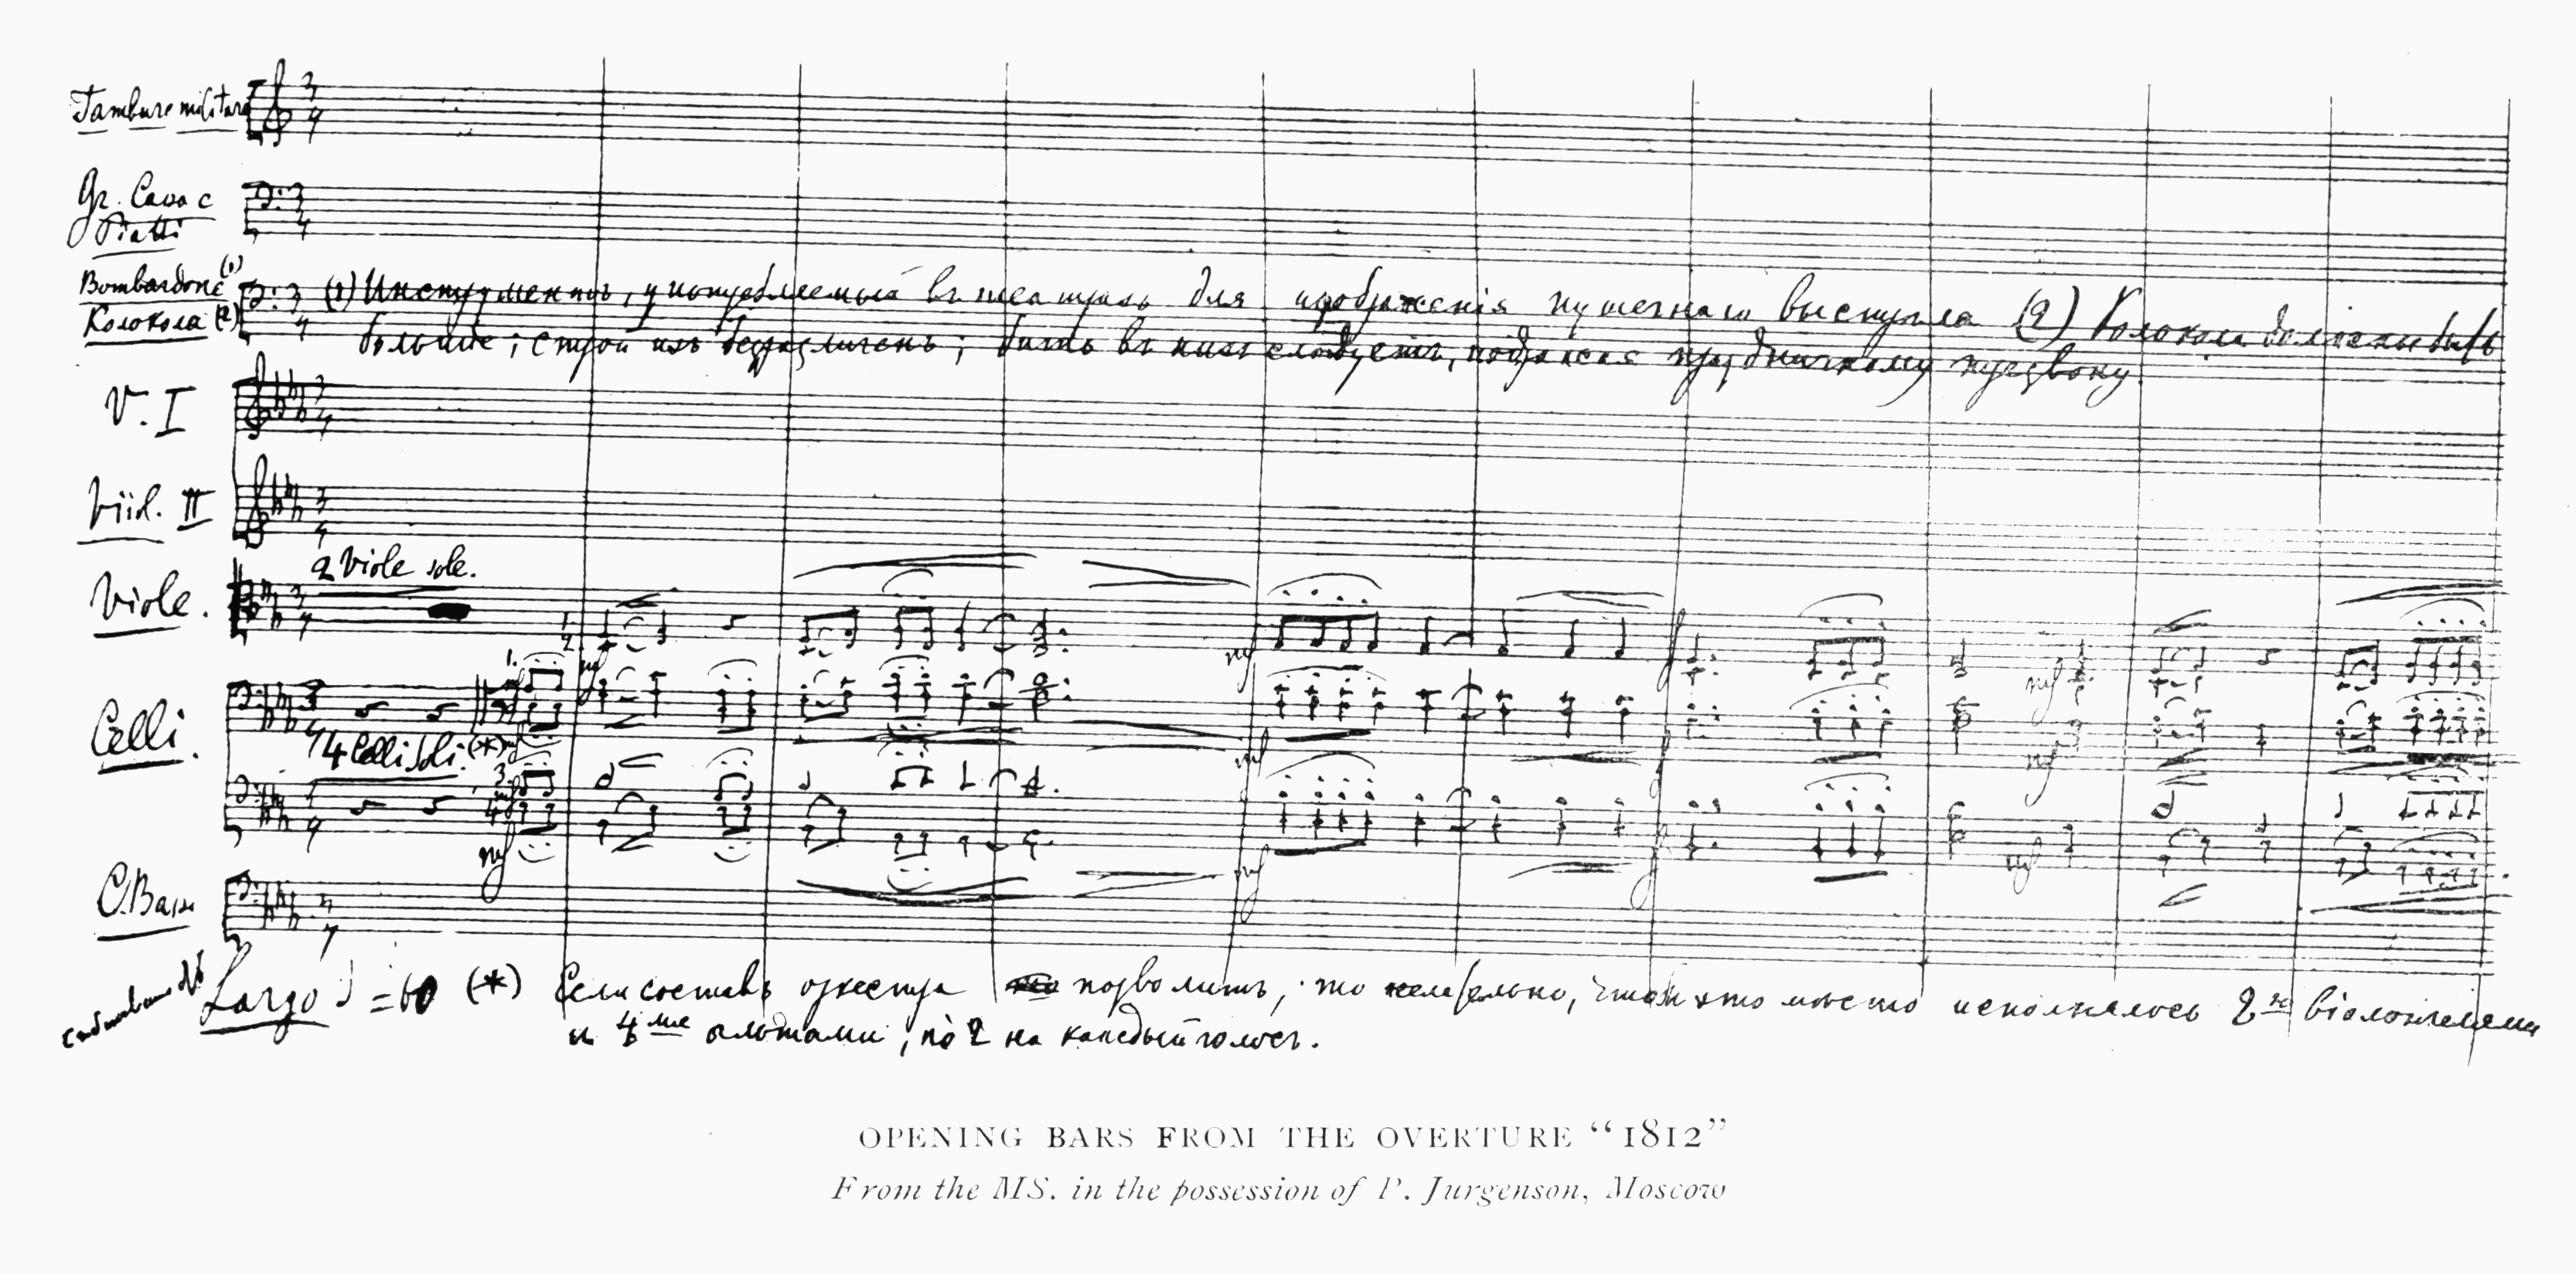 Tamburo militare
Gr. Cassa e
Piatti
Bombardone (1)
Колокола (2)
(1) Инструментъ, употребляемый въ театрахъ для изображенія пушечнаго выстрѣла (2) Колокола должны быть
большіе; строй ихъ безразличенъ; бить въ нихъ слѣдуетъ, подражая праздничному трезвону
V. I
Viol. II
2 Viole sole.
Viole.
1
2
mf
mf
1.
mf
Celli.
4 Celli soli. (*)
mf
mf
3.
4
mf
mf
C. Bassi
Largo ♩ = 60 (*) Если составъ оркестра позволитъ, то желательно, чтобы это мѣсто исполнялось 2-я віолончелями
и 4-мя альтами, по 2 на каждый голосъ.
OPENING BARS FROM THE OVERTURE “1812”
From the MS. in the possession of P. Jurgenson, Moscow